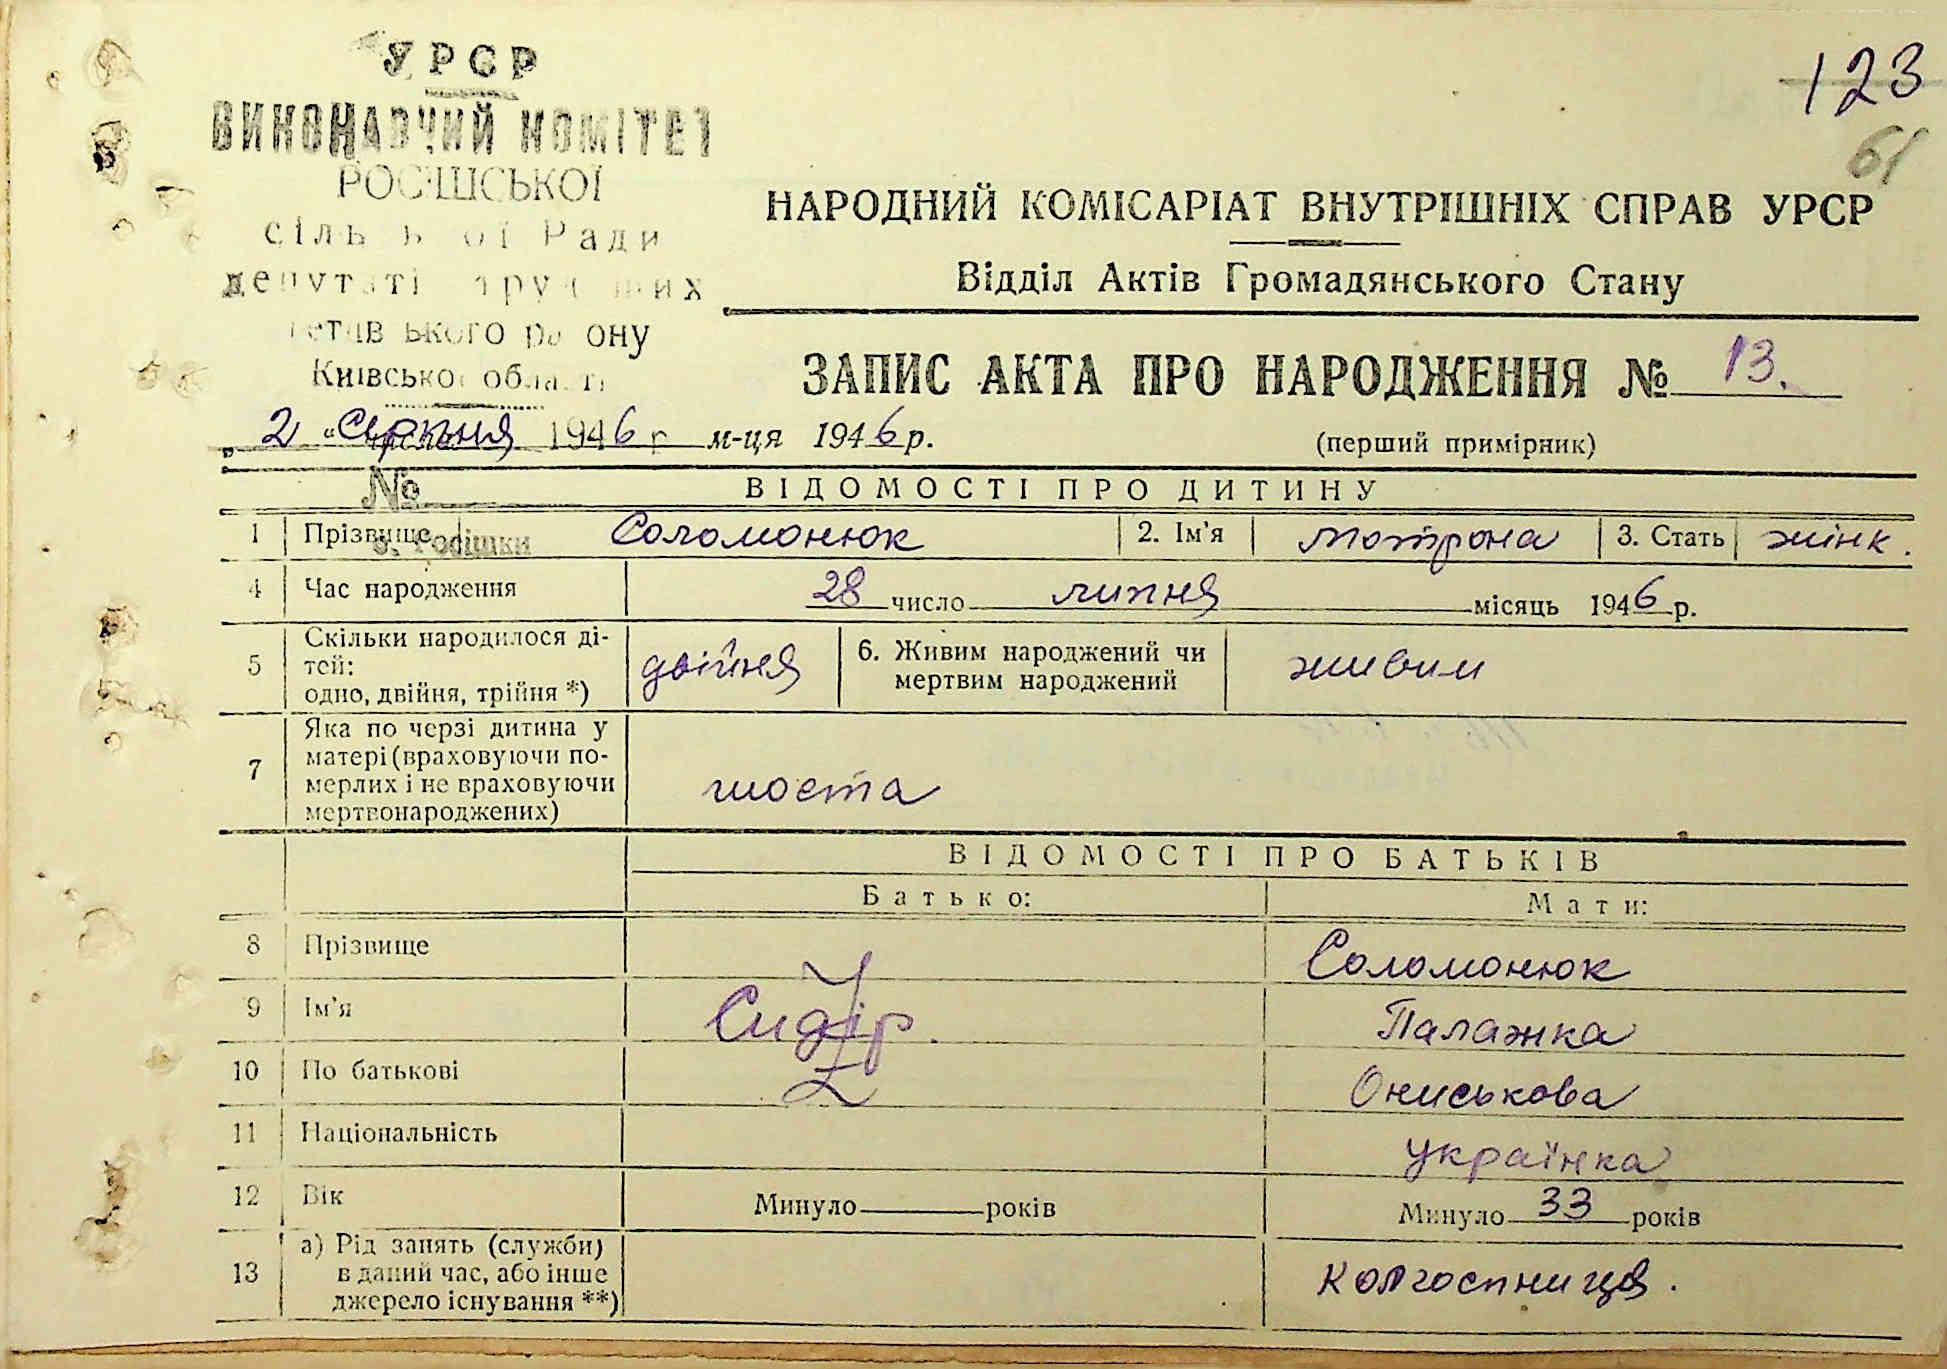 УРСР
ВИКОНАВЧИЙ КОМІТЕТ
РОСІШСЬКОЇ
сільської Ради
депутатів трудящих
Тетіївського району
Київської області
123
61
НАРОДНИЙ КОМІСАРІАТ ВНУТРІШНІХ СПРАВ УРСР
Відділ Актів Громадянського Стану
ЗАПИС АКТА ПРО НАРОДЖЕННЯ № 13.
„ 2 “ Серпня 1946 р. м-ця 1946 р.
(перший примірник)
№
с. Росішки
ВІДОМОСТІ ПРО ДИТИНУ
1 Прізвище Соломонюк 2. Ім'я Мотрона 3. Стать жінк.
4 Час народження 28 число липня місяць 1946 р.
5 Скільки народилося ді-
тей:
одно, двійня, трійня *) двійня 6. Живим народжений чи
мертвим народжений живим
7 Яка по черзі дитина у
матері (враховуючи по-
мерлих і не враховуючи
мертвонароджених) шоста
ВІДОМОСТІ ПРО БАТЬКІВ
Батько: Мати:
8 Прізвище Соломонюк
9 Ім'я Сидір. Палажка
10 По батькові Ониськова
11 Національність українка
12 Вік Минуло років Минуло 33 років
13 а) Рід занять (служби)
в даний час, або інше
джерело існування **) колгоспниця.